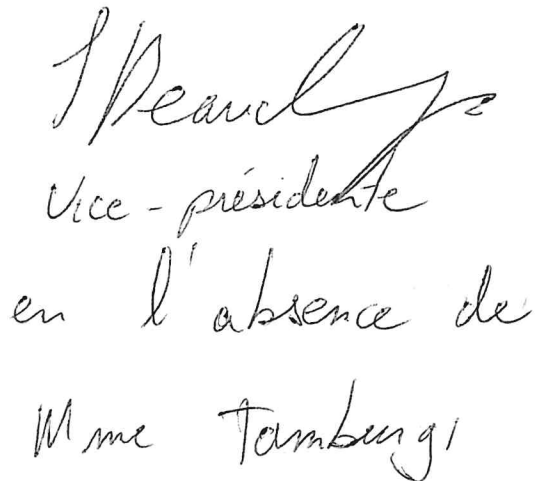 Vice-présidente
en l'absence de
Mme Tamburgi